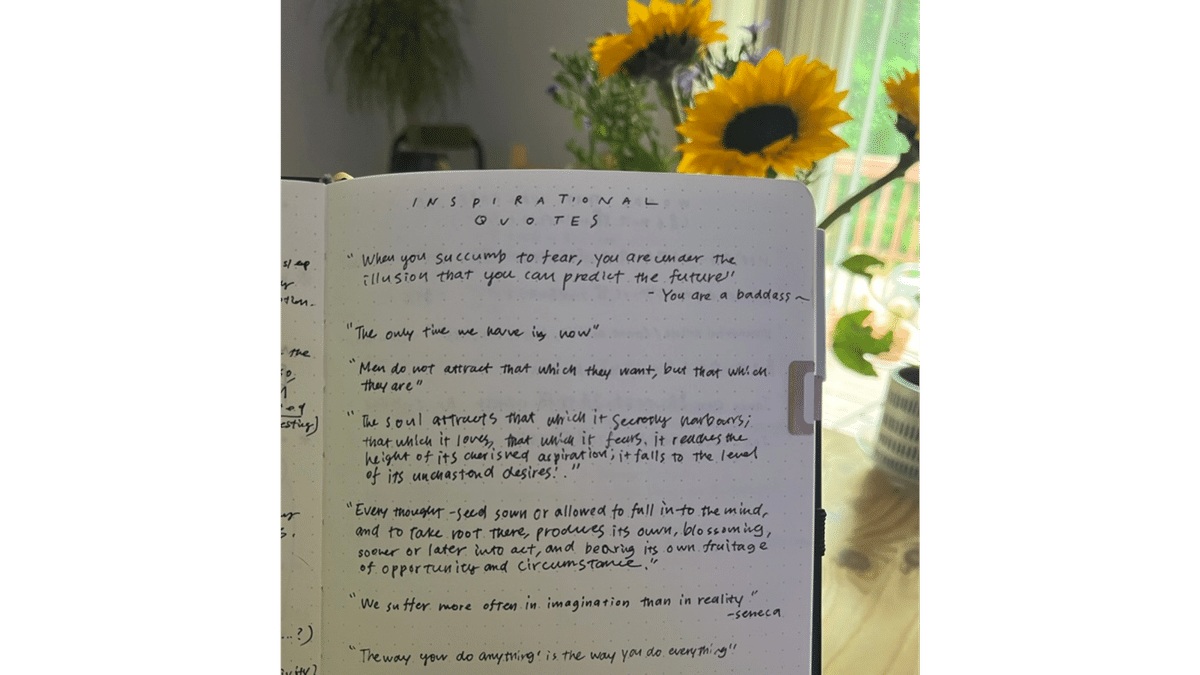 INSPIRATIONAL
QUOTES
"When you succumb to fear, you are under the
illusion that you can predict the future"
- You are a baddass ~
"The only time we have is now"
"Men do not attract that which they want, but that which
they are"
"The soul attracts that which it secretly harbours;
that which it loves, that which it fears. it reaches the
height of its cherished aspiration; it falls to the level
of its unchastond desires!."
"Every thought-seed sown or allowed to fall into the mind,
and to take root there, produces its own, blossoming,
sooner or later into act, and bearing its own fruitage
of opportunity and circumstance."
"We suffer more often in imagination than in reality"
-seneca
"The way you do anything' is the way you do everything"
the
esting)
...?)